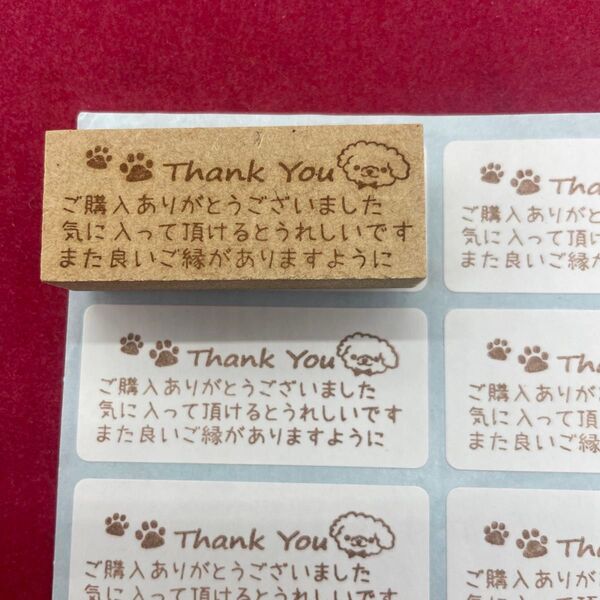 Thank You
ご購入ありがとうございました
気に入って頂けるとうれしいです
また良いご縁がありますように
Tha
ご購入ありがと
気に入って頂け
また良いご縁
Thank You
ご購入ありがとうございました
気に入って頂けるとうれしいです
また良いご縁がありますように
Tha
ご購入ありがと
気に入って頂ける
また良いご縁が
Thank You
ご購入ありがとうございました
気に入って頂けるとうれしいです
Tha
ご購入ありがと